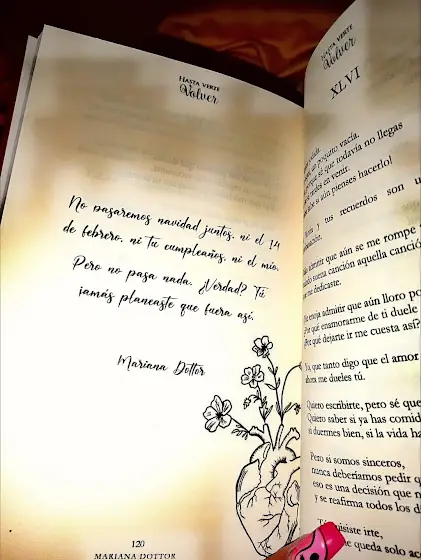 HASTA VERTE
Volver
No pasaremos navidad juntos, ni el 14
de febrero, ni tu cumpleaños, ni el mío.
Pero no pasa nada. ¿Verdad? Tú
jamás planeaste que fuera así.
Mariana Dottor
120
MARIANA DOTTOR
HASTA VERTE
Volver
XLVI
un poquito vacía.
sé que todavía no llegas
en venir.
si aún pienses hacerlo!
y tus recuerdos son u
admitir que aún se me rompe
suena canción aquella canció
me dedicaste.
enoja admitir que aún lloro po
¿Por qué enamorarme de ti duele
¿Por qué dejarte ir me cuesta así?
Ya, que tanto digo que el amor
ahora me dueles tú.
Quiero escribirte, pero sé que
Quiero saber si ya has comid
si duermes bien, si la vida ha
Pero si somos sinceros,
nunca deberíamos pedir q
eso es una decisión que n
y se reafirma todos los dí
quisiste irte,
me queda solo ac